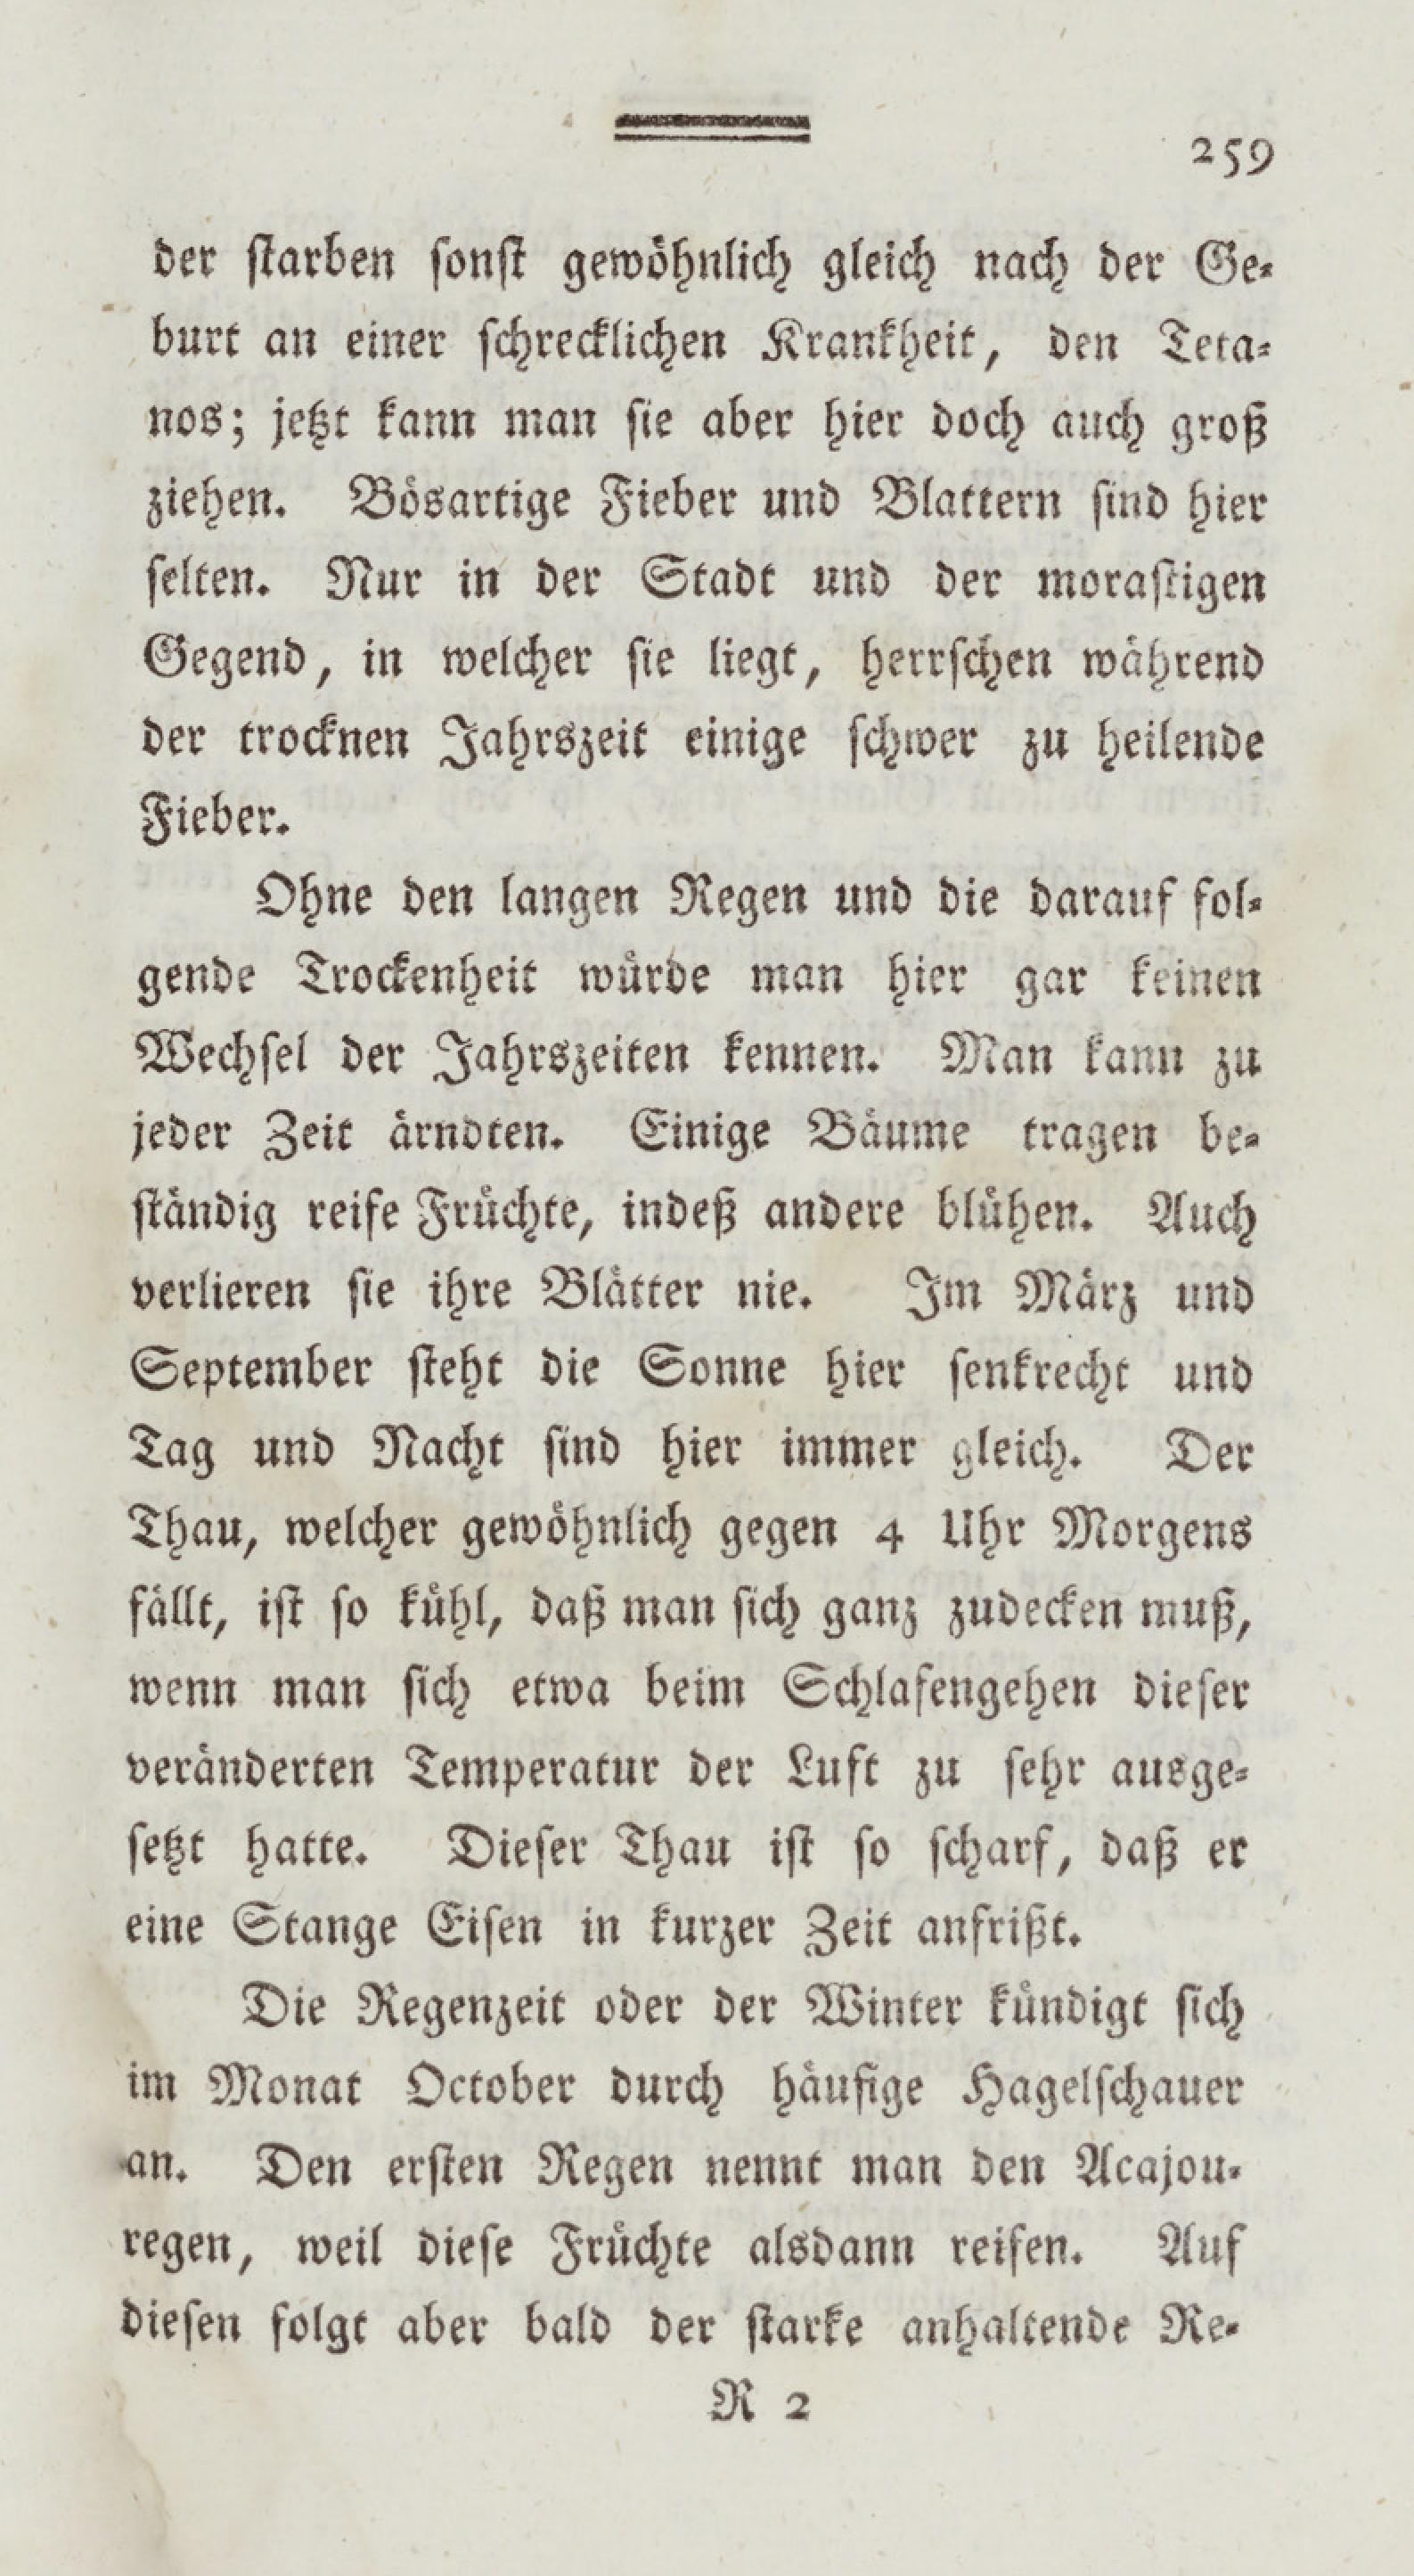 259
der ſtarben ſonſt gewöhnlich gleich nach der Ge-
burt an einer ſchrecklichen Krankheit, den Teta-
nos; jetzt kann man ſie aber hier doch auch groß
ziehen. Bösartige Fieber und Blattern ſind hier
ſelten. Nur in der Stadt und der moraſtigen
Gegend, in welcher ſie liegt, herrſchen während
der trocknen Jahrszeit einige ſchwer zu heilende
Fieber.
Ohne den langen Regen und die darauf fol-
gende Trockenheit würde man hier gar keinen
Wechſel der Jahrszeiten kennen. Man kann zu
jeder Zeit ärndten. Einige Bäume tragen be-
ſtändig reife Früchte, indeß andere blühen. Auch
verlieren ſie ihre Blätter nie. Im März und
September ſteht die Sonne hier ſenkrecht und
Tag und Nacht ſind hier immer gleich. Der
Thau, welcher gewöhnlich gegen 4 Uhr Morgens
fällt, iſt ſo kühl, daß man ſich ganz zudecken muß,
wenn man ſich etwa beim Schlafengehen dieſer
veränderten Temperatur der Luft zu ſehr ausge-
ſetzt hatte. Dieſer Thau iſt ſo ſcharf, daß er
eine Stange Eiſen in kurzer Zeit anfrißt.
Die Regenzeit oder der Winter kündigt ſich
im Monat October durch häufige Hagelſchauer
an. Den erſten Regen nennt man den Acajou-
regen, weil dieſe Früchte alsdann reifen. Auf
dieſen folgt aber bald der ſtarke anhaltende Re-
R 2